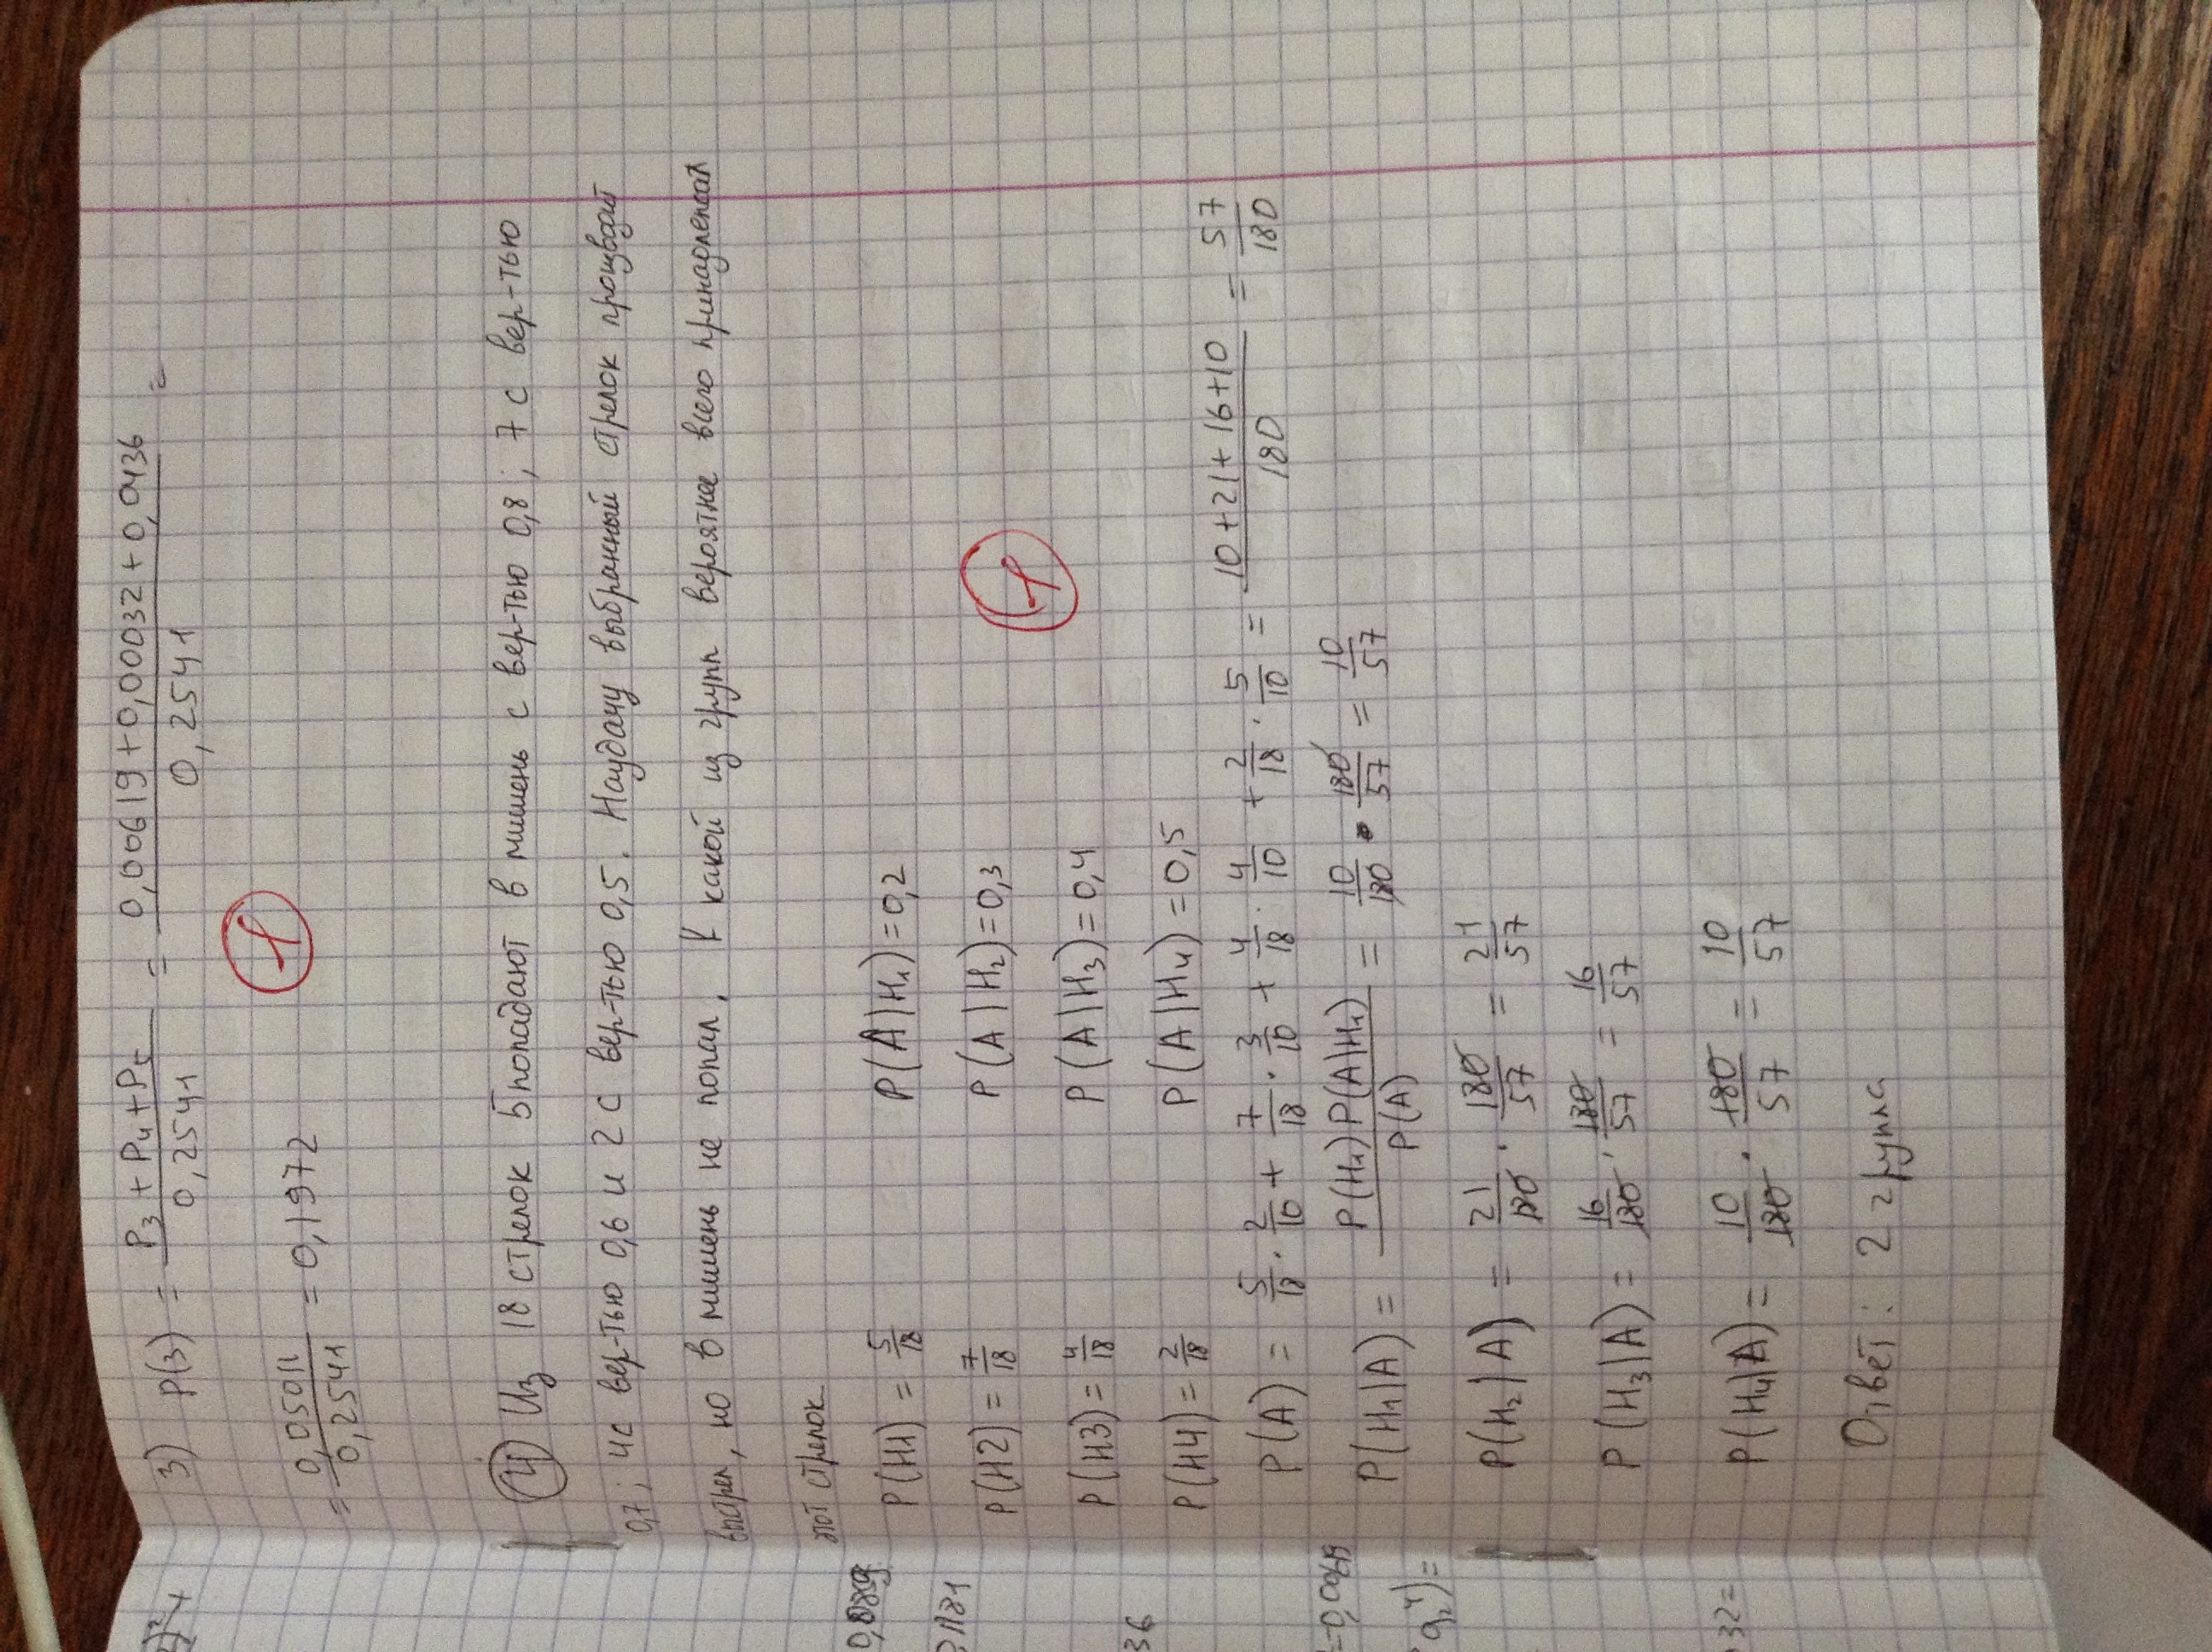 3) P(3) = (P₃ + P₄ + P₅)/0,2541 = (0,00619 + 0,00032 + 0,0436)/0,2541 =
= 0,05011/0,2541 = 0,1972
④ Из 18 стрелок 5 попадают в мишень с вер-тью 0,8; 7 с вер-тью
0,7; 4 с вер-тью 0,6 и 2 с вер-тью 0,5. Наудачу выбранный стрелок
выстрел, но в мишень не попал. К какой из групп вероятнее всего принадлежал
этот стрелок
P(H1) = 5/18 P(A|H₁) = 0,2
P(H2) = 7/18 P(A|H₂) = 0,3
P(H3) = 4/18 P(A|H₃) = 0,4
P(H4) = 2/18 P(A|H₄) = 0,5
P(A) = 5/18 · 2/10 + 7/18 · 3/10 + 4/18 · 4/10 + 2/18 · 5/10 = (10+21+16+10)/180 = 57/180
P(H₁|A) = P(H₁)P(A|H₁)/P(A) = 10/180 · 180/57 = 10/57
P(H₂|A) = 21/180 · 180/57 = 21/57
P(H₃|A) = 16/180 · 180/57 = 16/57
P(H₄|A) = 10/180 · 180/57 = 10/57
Ответ: 2 группа
36
=0,00619
32=